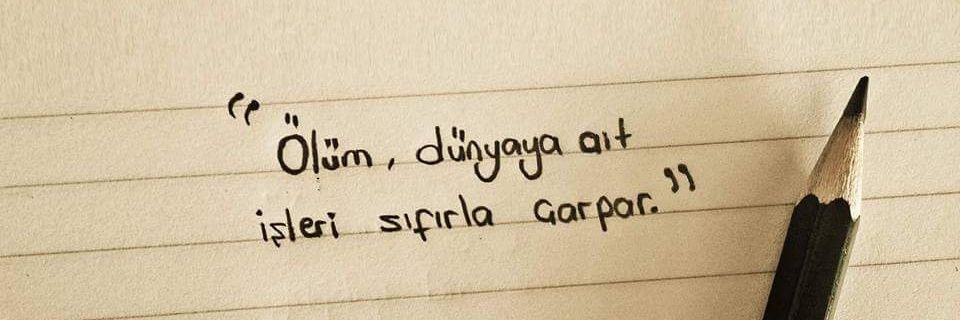 “Ölüm, dünyaya aıt
işleri sıfırla çarpar.”